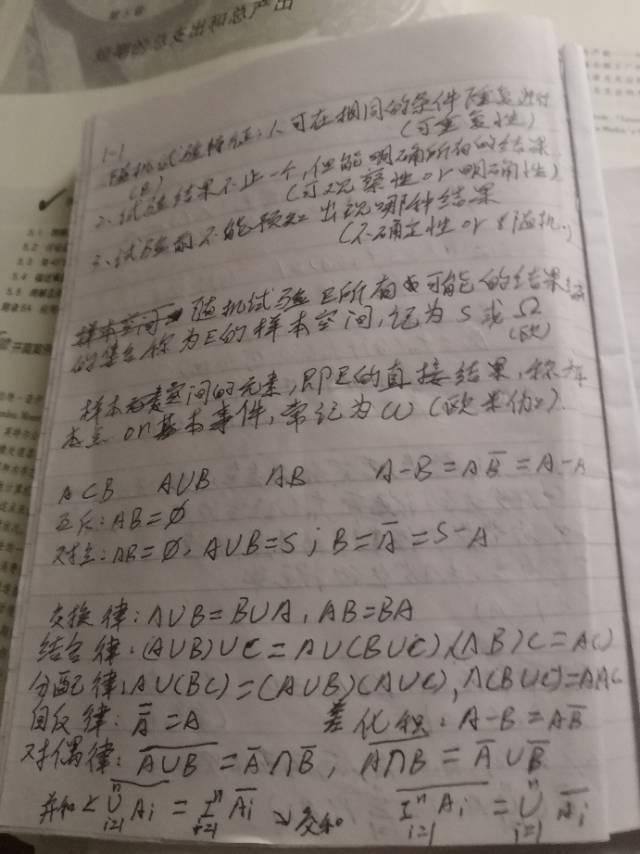 第5章
短期的总支出和总产出
1-1
随机试验特征:1、可在相同的条件下重复进行
(E) (可重复性)
2、试验结果不止一个,但能明确所有的结果
(可观察性 or 明确性)
3、试验前不能预知出现哪种结果
(不确定性 or 随机.)
样本空间 随机试验E所有可能的结果组成
的集合称为E的样本空间,记为 S 或 Ω
(欧)
样本空间的元素,即E的直接结果,称样
本点 or 基本事件,常记为 ω (欧米伽).
A⊂B A∪B AB A-B=AB̅=A-A
互斥:AB=Ø
对立:AB=Ø,A∪B=S;B=A̅=S-A
交换律:A∪B=B∪A,AB=BA
结合律:(A∪B)∪C=A∪(B∪C),(AB)C=A(
分配律:A∪(BC)=(A∪B)(A∪C),A(B∪C)=
自反律:A̿=A 差化积:A-B=AB̅
对偶律:\overline{A∪B}=A̅∩B̅,\overline{A∩B}=A̅∪B̅
\overline{∪ⁿᵢ₌₁Aᵢ}=Iⁿᵢ₌₁A̅ᵢ \overline{Iⁿᵢ₌₁Aᵢ}=∪ⁿᵢ₌₁A̅ᵢ